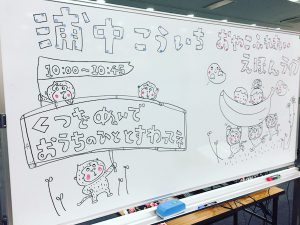 浦中こういち おやこふれあい
えほんライブ
10:00〜10:45
くつをぬいで
おうちのひととすわってネ